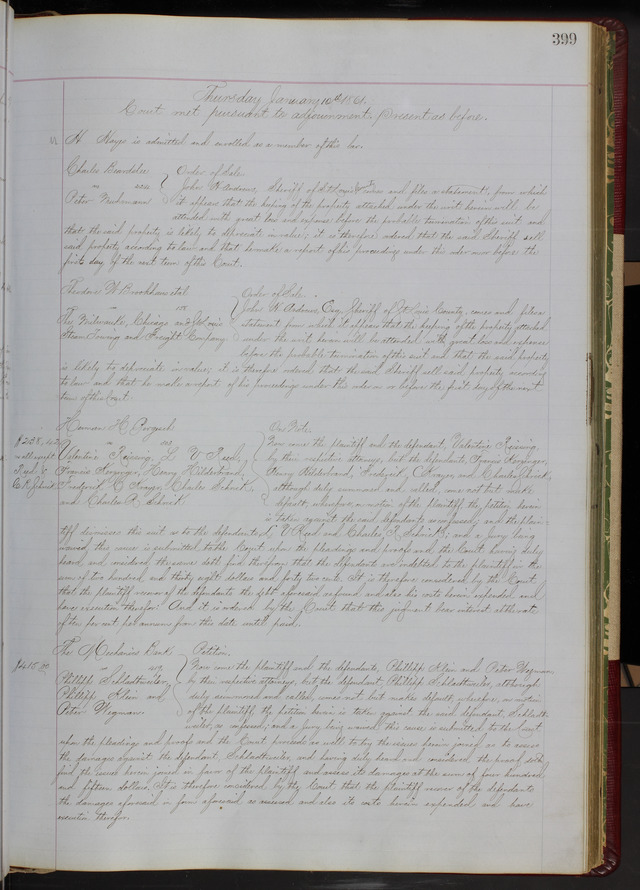 399
Thursday January 10th 1861.
Court met pursuant to adjournment. Present as before.
H. Hayes is admitted and enrolled as a member of this bar.
Charles Beardslee Order of Sale.
John W Andrews, Sheriff of St Louis comes and files a statement, from which
Peter it appears that the keeping of the property attached under the writ herein will be
attended with great loss and expense before the probable termination of this suit and
that the said property is likely to depreciate in value; it is therefore ordered that the said Sheriff sell
said property according to law and that he make a report of his proceedings under this order on or before the
first day of the next term of this Court.
Theodore W. Brookham et al Order of Sale.
vs John W Andrews, Esq. Sheriff of St Louis County, comes and files a
The Milwaukie, Chicago and St Louis statement from which it appears that the keeping of the property attached
Steam Towing and Freight Company under the writ herein will be attended with great loss and expense
before the probable termination of this suit and that the said property
is likely to depreciate in value; it is therefore ordered that the said Sheriff sell said property according
to law and that he make a report of his proceedings under this order on or before the first day of the next
term of this Court.
Herman H. On Note.
$238.42 vs Now come the plaintiff and the defendant, Valentine Reising,
vs all except Valentine Reising, L V Reed, by their respective attorneys, but the defendants, Francis
Reed & Francis Henry Hilderbrand, Henry Hilderbrand, Frederick C and Charles Schnick,
C R Schmidt Frederick C Charles Schnick, although duly summoned and called, come not but make
and Charles R. Schmidt default; wherefore, on motion of the plaintiff, the petition herein
is taken against the said defendants as confessed; and the plain-
tiff dismisses this suit as to the defendants L V Reed and Charles R Schmidt; and a jury being
waived, this cause is submitted to the Court upon the pleadings and proofs and the Court having duly
heard and considered the same doth find therefrom that the defendants are indebted to the plaintiff in the
sum of two hundred and thirty eight dollars and forty two cents. It is therefore considered by the Court
that the plaintiff recover of the defendants the debt aforesaid so found and also his costs herein expended and
have execution therefor. And it is ordered by the Court that this judgment bear interest at the rate
of ten per cent per annum from this date until paid.
The Mechanics Bank Petition.
$415.00 vs Now come the plaintiff and the defendants, Phillipp Klein and Peter Wegman
Phillipp Schlattweiler, by their respective attorneys, but the defendant Phillipp Schlattweiler, although
Phillipp Klein and duly summoned and called, comes not but makes default; wherefore, on motion
Peter Wegman of the plaintiff, the petition herein is taken against the said defendant, Schlatt-
weiler, as confessed; and a jury being waived, this cause is submitted to the Court
upon the pleadings and proofs and the Court proceeds as well to try the issues herein joined as to assess
the damages against the defendant, Schlattweiler, and having duly heard and considered the proofs doth
find the issues herein joined in favor of the plaintiff and assess its damages at the sum of four hundred
and fifteen dollars. It is therefore considered by the Court that the plaintiff recover of the defendants
the damages aforesaid in form aforesaid so assessed and also its costs herein expended and have
execution therefor.